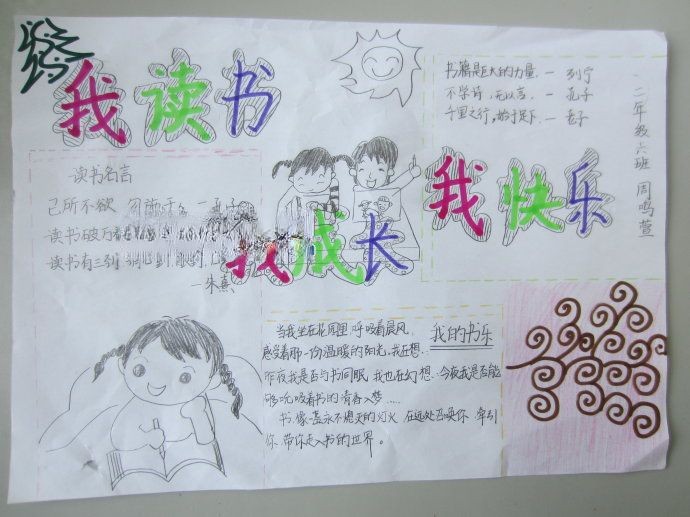 我读书
书籍是巨大的力量. — 列宁
不学诗,无以言. — 孔子
千里之行,始于足下 — 老子
二年级六班 周鸣萱
我快乐
我成长
读书名言
己所不欲 勿施于 — 孔子
读书破万
读书有三到
—朱熹
我的书乐
当我坐在花园里,呼吸着晨风,
感受着那一份温暖的阳光,我在想…
昨夜我是否与书同眠,我也在幻想…今夜我是否能
够吮吸着书的清香入梦……
书,像一盏永不熄灭的灯火,在远处召唤你,牵引
你,带你走入书的世界。